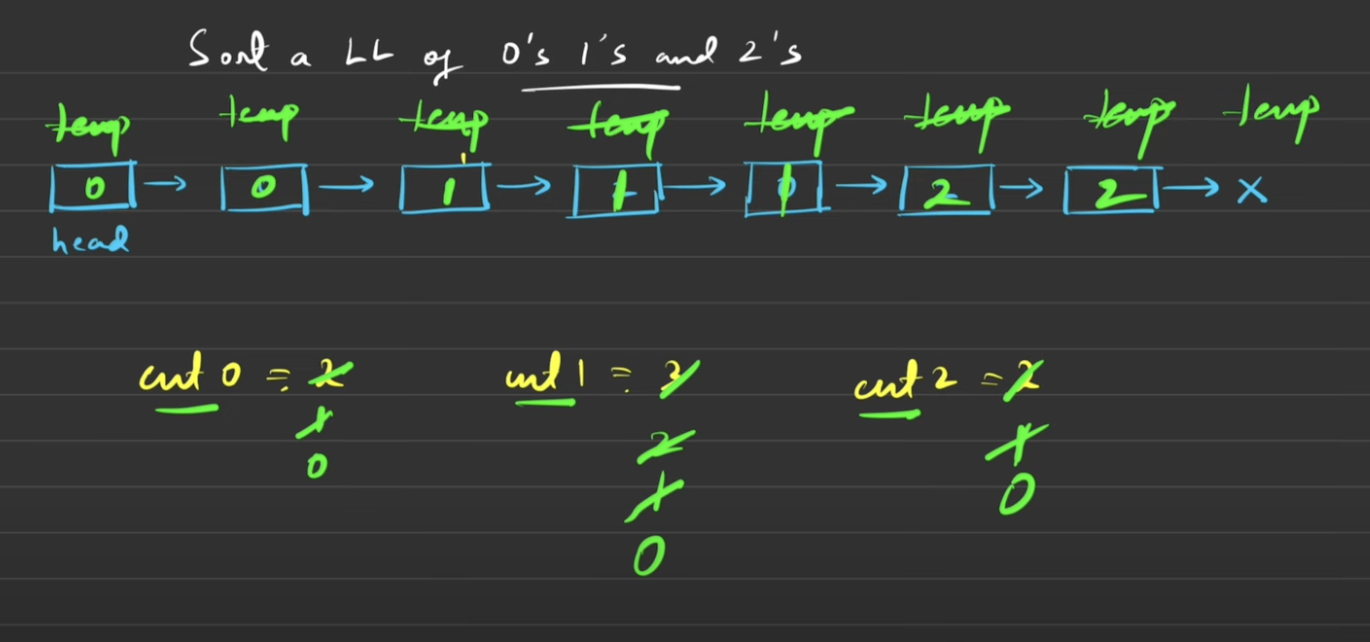 Sort a LL of 0's 1's and 2's
temp temp temp temp temp temp temp temp
0 → 0 → 1 → 1 → 1 → 2 → 2 → X
head
cnt 0 = 2 cnt 1 = 3 cnt 2 = 2
1 2 1
0 1 0
0